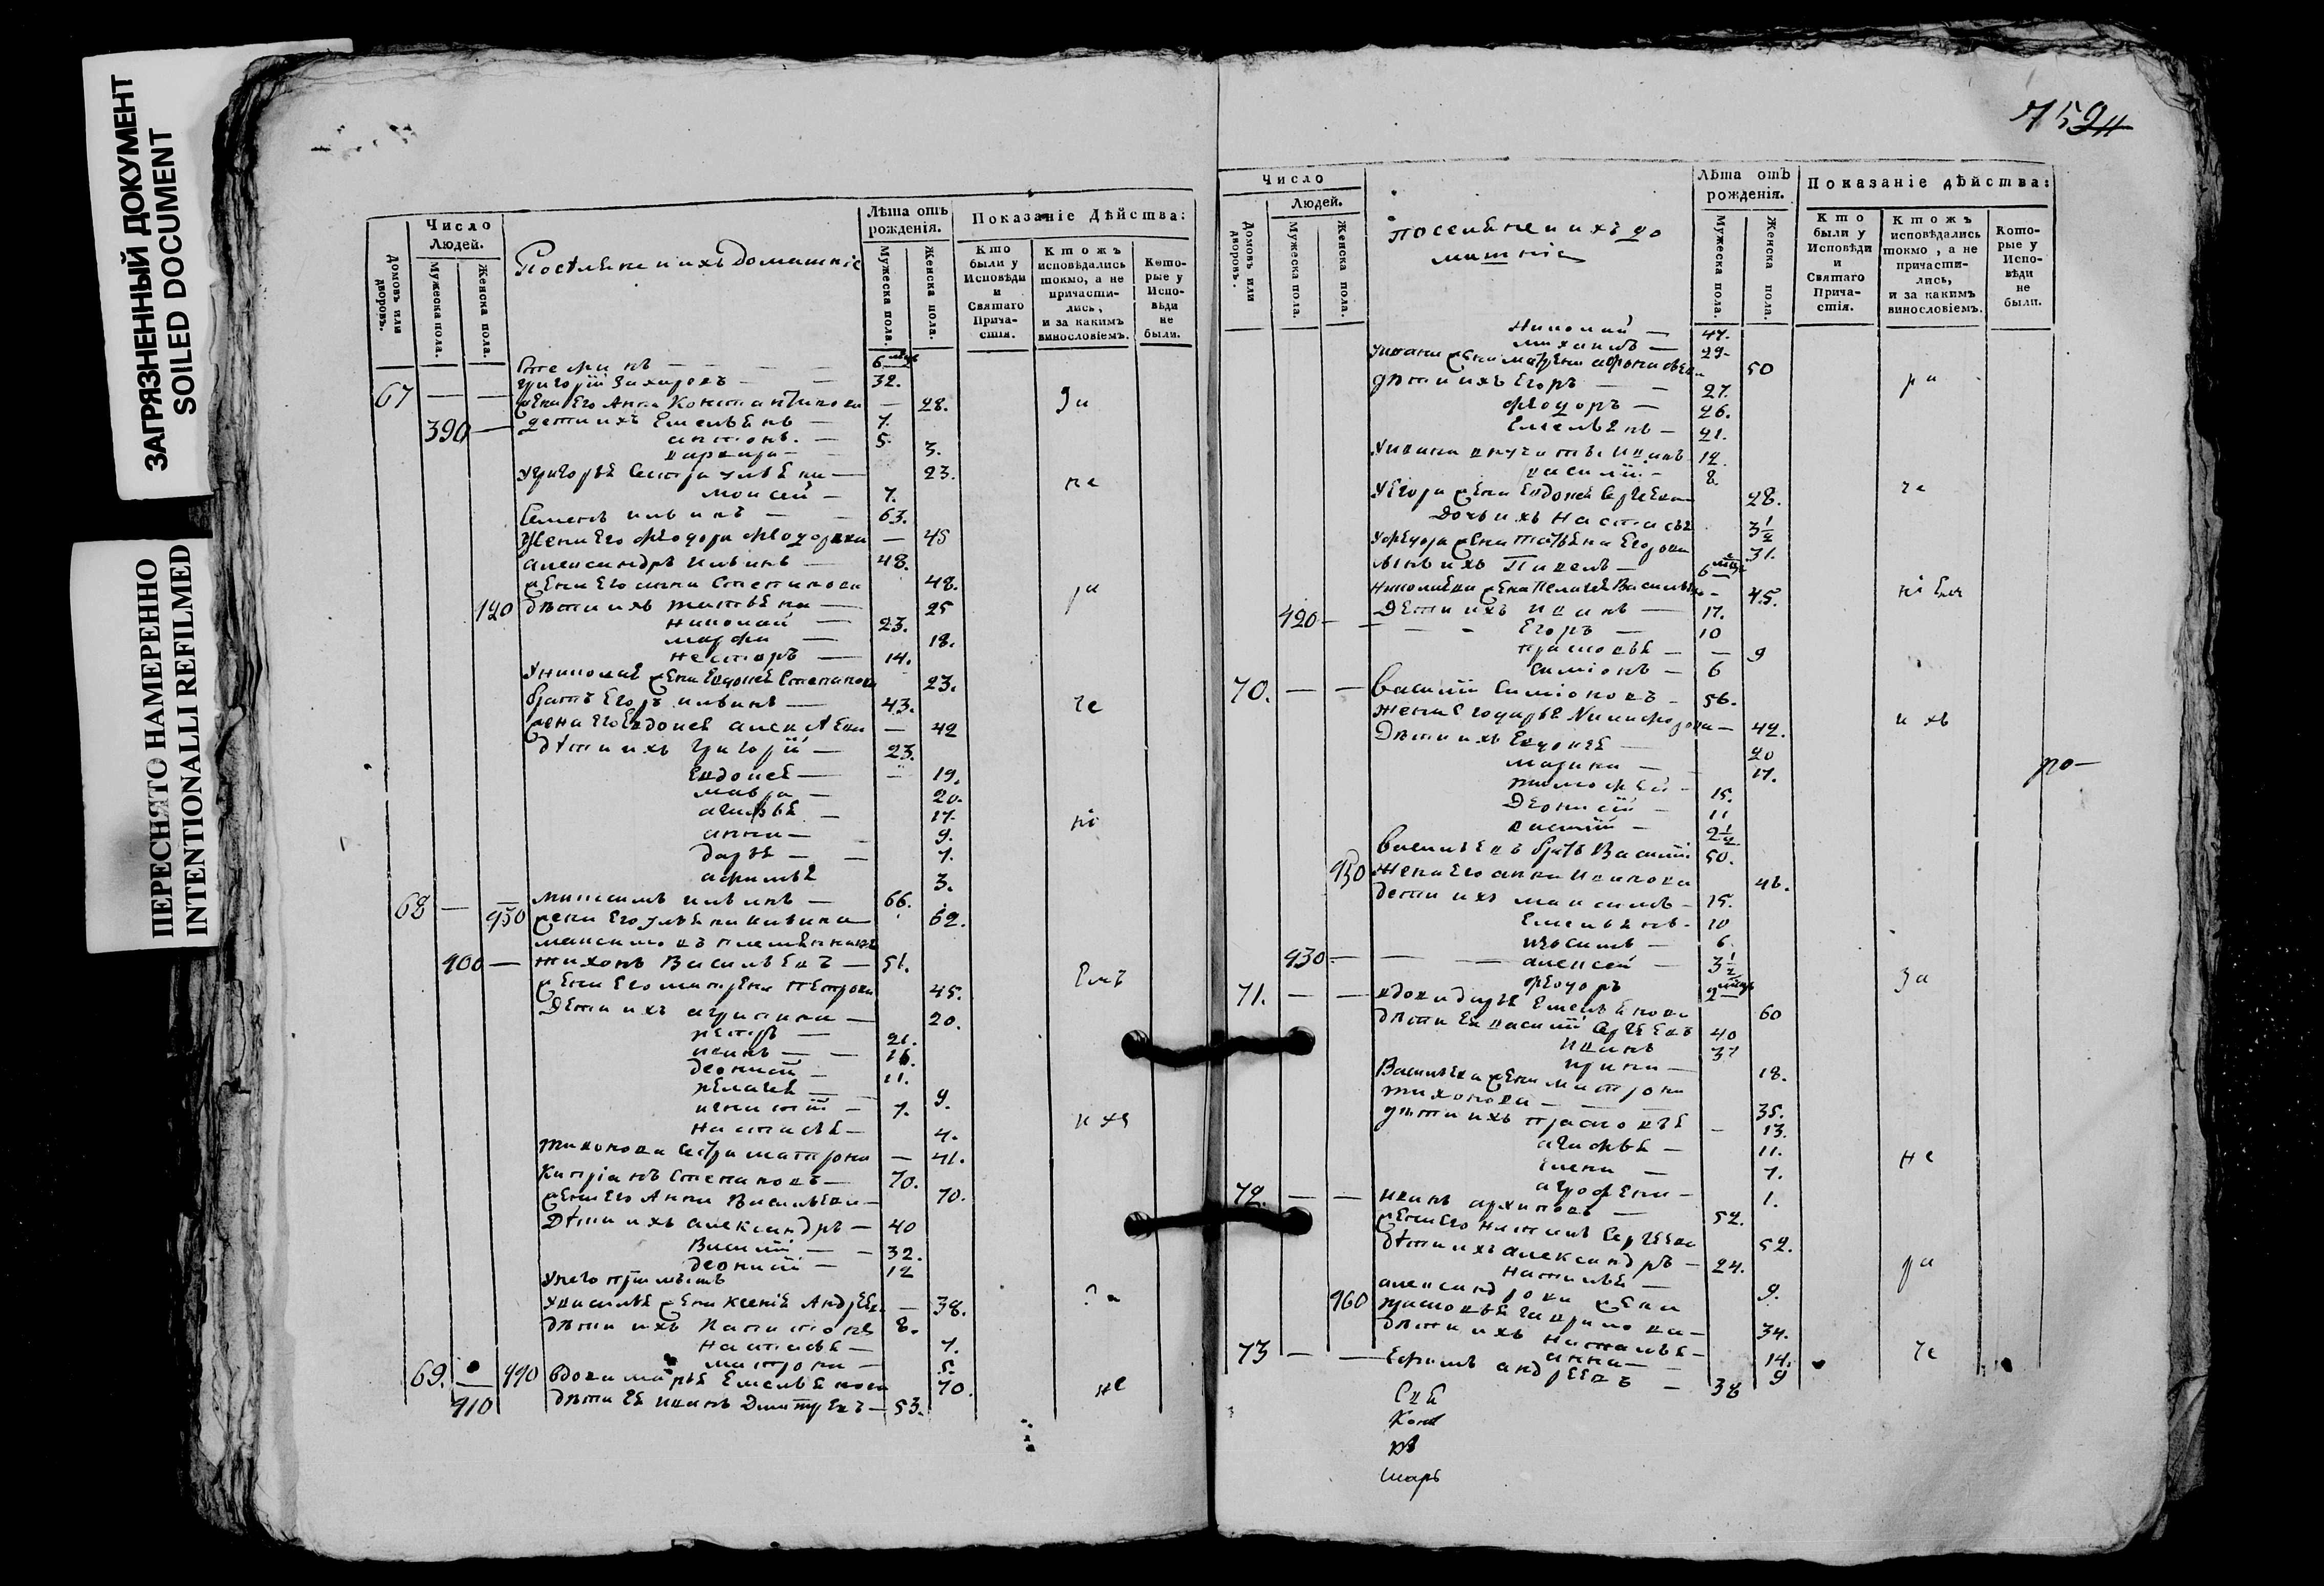 ЗАГРЯЗНЕННЫЙ ДОКУМЕНТ
SOILED DOCUMENT
ПЕРЕСНЯТО НАМЕРЕННО
INTENTIONALLI REFILMED
Домовъ или дворовъ.
Число
Людей.
Мужеска пола.
Женска пола.
Поселяне и ихъ домашніе
Лѣта отъ
рожденія.
Мужеска пола.
Женска пола.
Показаніе Дѣйства:
Кто
были у
Исповѣди
и
Святаго
Прича-
стія.
Ктожъ
исповѣдались
токмо, а не
причасти-
лись,
и за какимъ
винословіемъ.
Кото-
рые у
Испо-
вѣди
не
были.
6
67 — — Григорій Захаровъ — 32.
жена Его Анна Константинова — 28. За
390 — дети ихъ Емелѣянъ — 7.
антонъ — 5.
варвара — 3.
Григорья Сестра улѣяна — 23.
моисей — 7. не
Семенъ ильинъ — 63.
Жена Его Феодора Феодорова — 45
александръ ильинъ — 48.
жена Его анна Степанова 48.
дѣти ихъ татьяна — 25 ра
николай — 23.
марфа — 18.
несторъ — 14.
У николая жена Евдокея Степанова 23.
братъ Егоръ ильинъ — 43. че
жена Его Евдокея алекѣева — 42
дѣти ихъ Григорій — 23.
Евдокея — 19.
мавра — 20.
агафья — 17.
анна — 9. ні
дарья — 7.
афимья 3.
68 — максимъ ильинъ — 66.
950 жена Его улѣяна ильина — 62.
400 — тихонъ Васильевъ — 51.
жена Его матрена петрова 45. Емъ
Дети ихъ агрипина — 20.
петръ — 21.
иванъ — 16.
деонисій — 11.
пелагея — 9.
игнатій — 7.
настасья — 4. ихъ
тихонова сестра матрона — 41.
Кипріанъ Степановъ — 70.
жена Его Анна Васильева — 70.
Дѣти ихъ александръ — 40
Василій — 32.
деонисій — 12
У василья жена ксенія Андреева — 38.
дѣти ихъ 8.
настасья — 7.
матрона — 5.
69. 440 вдова марья Емельянова 70.
410 дѣти Ея иванъ Дмитревъ — 53. не
752
Число
Домовъ или дворовъ.
Людей.
Мужеска пола.
Женска пола.
поселяне и ихъ до
машніе
Лѣта отъ
рожденія.
Мужеска пола.
Женска пола.
Показаніе дѣйства:
Кто
были у
Исповѣди
и
Святаго
Прича-
стія.
Ктожъ
исповѣдались
токмо, а не
причасти-
лись,
и за какимъ
винословіемъ.
Кото-
рые у
Испо-
вѣди
не
были.
николай — 47.
михаилъ — 29.
У ивана жена матрена 50
дѣти ихъ Егоръ — 27. ра
Феодоръ — 26.
Емельянъ — 21.
Иванъ — 12.
василій — 8.
У Егора жена Евдокея Сергеева 28. че
Дочь ихъ настасья 3½
У феодора жена татьяна Егорова 31.
сынъ ихъ Павелъ — 6
николаева жена Пелагея Васильева — 45.
420 — Дети ихъ иванъ — 17.
Егоръ — 10
прасковья — 9
симіонъ — 6
70. — — Василій Симіоновъ — 56.
жена его дарья Никифорова — 42. ихъ
Дѣти ихъ Евдокея — 20
марина — 17.
тимофей — 15.
Деонисій — 11
василій — 2½
Васильевъ братъ Василій 50.
950 жена Его анна Иванова 46.
дети ихъ максимъ — 15.
Емельянъ — 10
6.
430 — алексей — 3½
феодоръ 2
71. — — вдова дарья Емельянова 60 За
дѣти Ея василій Сергеевъ 40
иванъ 37
ирина — 18.
Васильева жена матрона
тихонова — 35.
дѣти ихъ прасковья — 13.
агафья — 11.
Елена — 7. не
агрофена — 1.
72. — — иванъ архиповъ — 52.
жена Его Сергеева 52.
дѣти ихъ александръ — 24.
наталья — 9. ра
александрова жена
960 прасковья гаврилова — 34.
дѣти ихъ наталья — 14.
анна — 9
73 — — Ефимъ андреевъ — 38 че